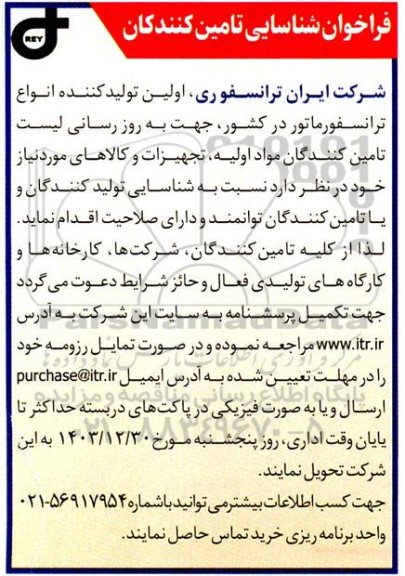 فراخوان شناسایی تامین کنندگان
REY
شرکت ایران ترانسفو ری، اولین تولیدکننده انواع
ترانسفورماتور در کشور، جهت به روز رسانی لیست
تامین کنندگان مواد اولیه، تجهیزات و کالاهای موردنیاز
خود در نظر دارد نسبت به شناسایی تولید کنندگان و
یا تامین کنندگان توانمند و دارای صلاحیت اقدام نماید.
لذا از کلیه تامین کنندگان، شرکت‌ها، کارخانه‌ها و
کارگاه های تولیدی فعال و حائز شرایط دعوت می گردد
جهت تکمیل پرسشنامه به سایت این شرکت به آدرس
www.itr.ir مراجعه نموده و در صورت تمایل رزومه خود
را در مهلت تعیین شده به آدرس ایمیل purchase@itr.ir
ارسال و یا به صورت فیزیکی در پاکت‌های دربسته حداکثر تا
پایان وقت اداری، روز پنجشنبه مورخ ۱۴۰۳/۱۲/۳۰ به این
شرکت تحویل نمایند.
جهت کسب اطلاعات بیشتر می توانید با شماره ۵۶۹۱۷۹۵۴-۰۲۱
واحد برنامه ریزی خرید تماس حاصل نمایند.